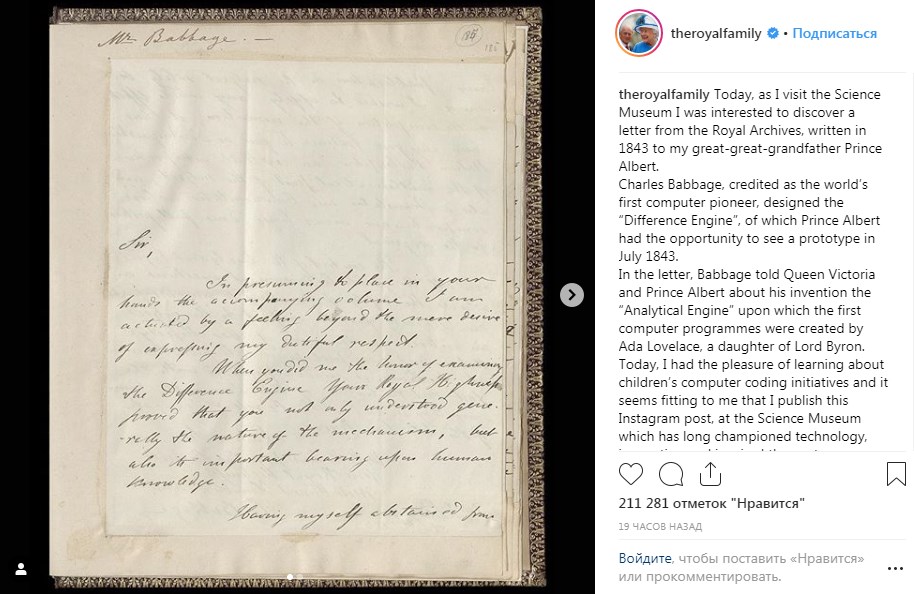 Mr Babbage. —
186
186
Sir,
In presuming to place in your
hands the accompanying volume I am
actuated by a feeling beyond the mere desire
of expressing my dutiful respect.
When you did me the honor of examining
the Difference Engine Your Royal Highness
proved that you not only understood gene-
-rally the nature of the mechanism, but
also its important bearing upon human
knowledge.
Having myself abstained from
theroyalfamily • Подписаться
theroyalfamily Today, as I visit the Science
Museum I was interested to discover a
letter from the Royal Archives, written in
1843 to my great-great-grandfather Prince
Albert.
Charles Babbage, credited as the world’s
first computer pioneer, designed the
“Difference Engine”, of which Prince Albert
had the opportunity to see a prototype in
July 1843.
In the letter, Babbage told Queen Victoria
and Prince Albert about his invention the
“Analytical Engine” upon which the first
computer programmes were created by
Ada Lovelace, a daughter of Lord Byron.
Today, I had the pleasure of learning about
children’s computer coding initiatives and it
seems fitting to me that I publish this
Instagram post, at the Science Museum
which has long championed technology,
211 281 отметок "Нравится"
19 ЧАСОВ НАЗАД
Войдите, чтобы поставить «Нравится»
или прокомментировать.